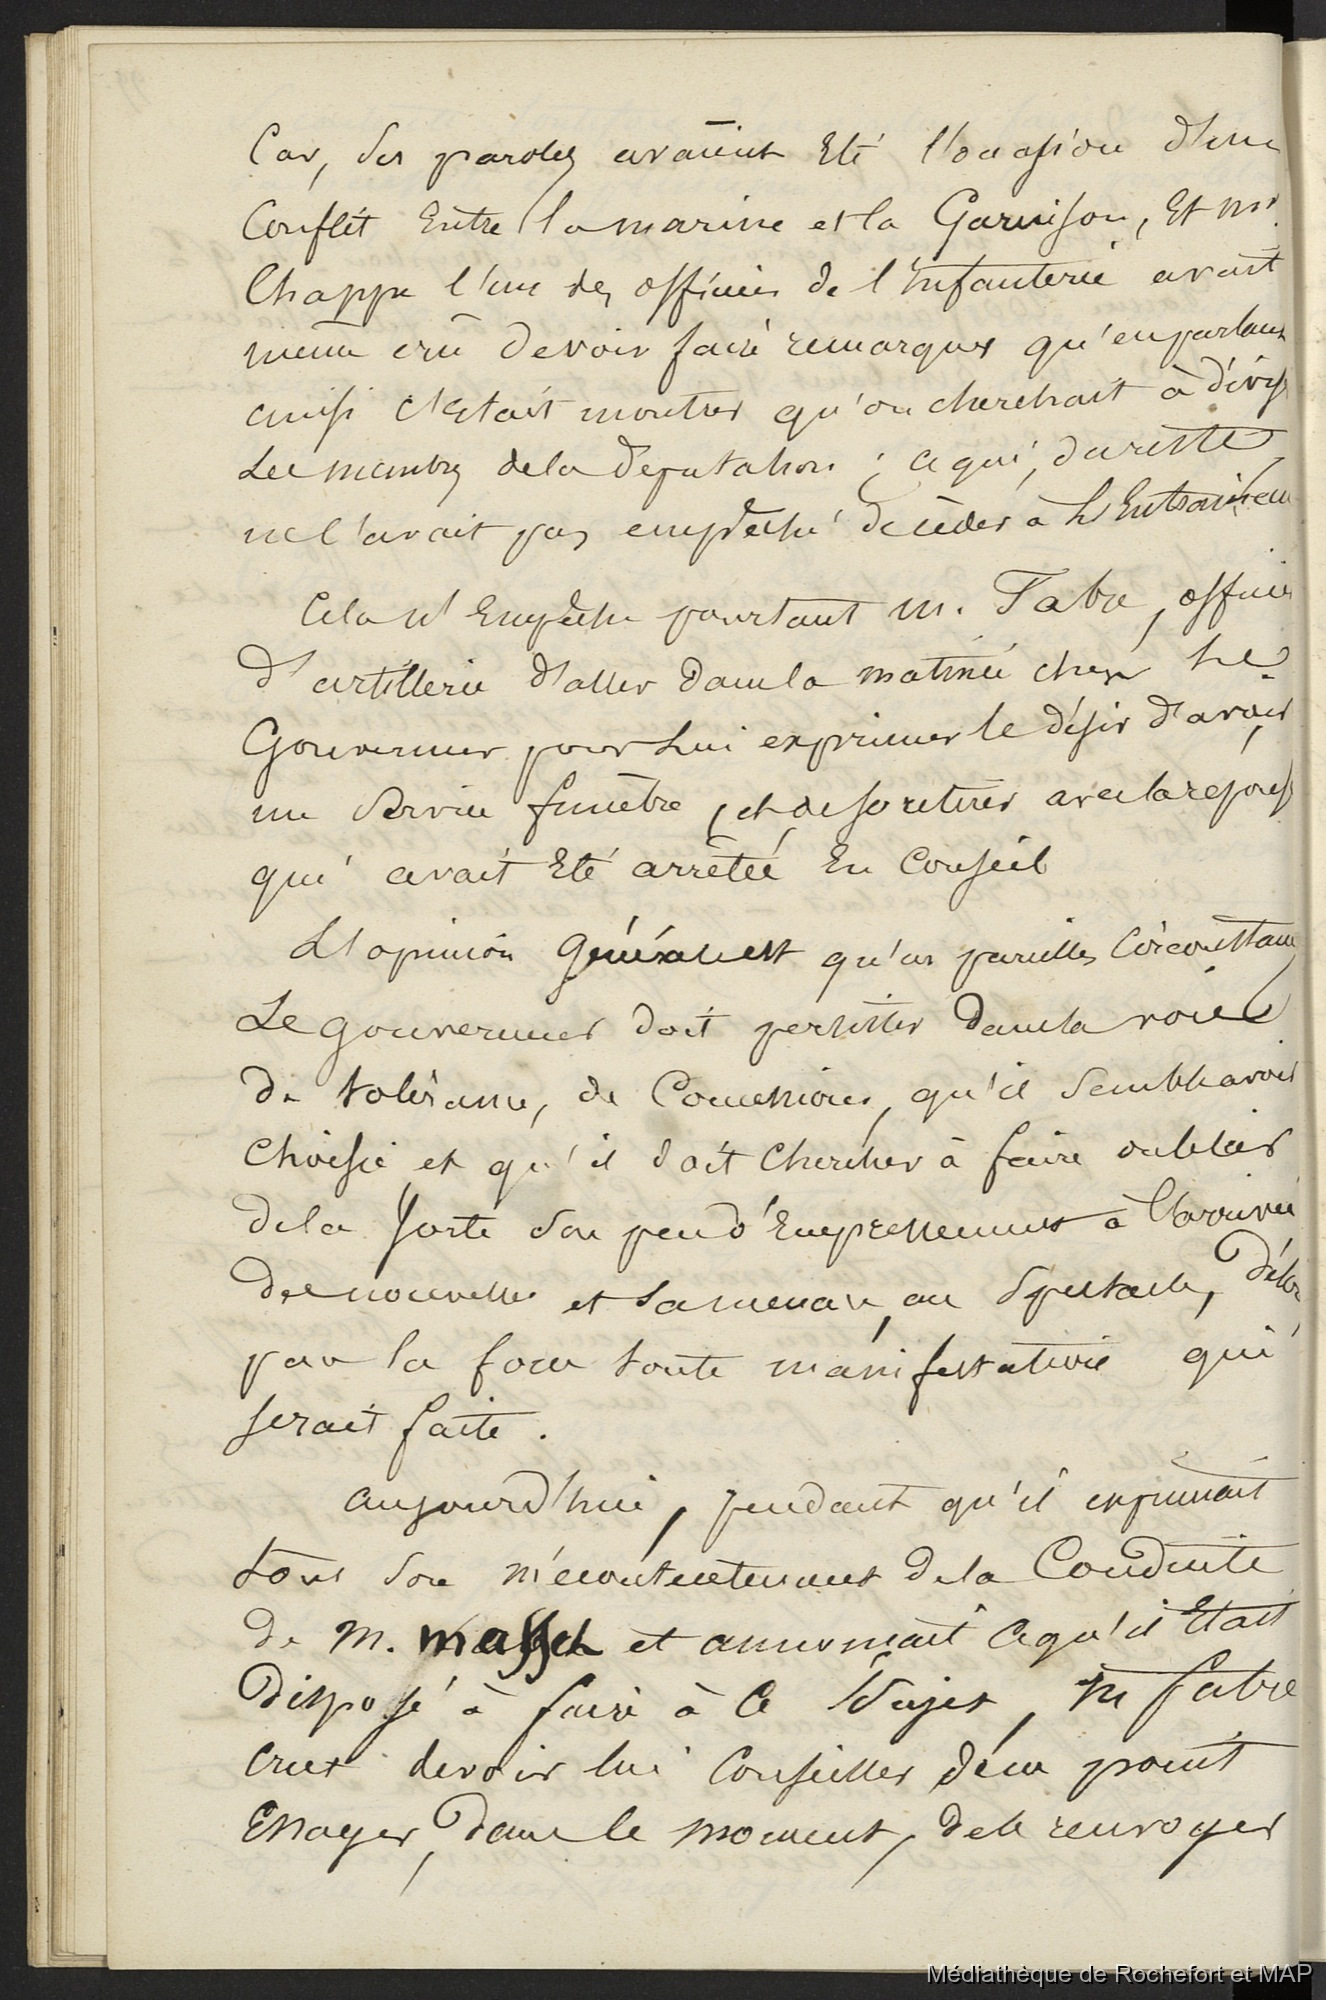 Car, ses paroles avaient Eté l'occasion d'un
Conflit Entre la marine et la Garnison, Et mr.
Chappe l'un des officier de l'Infanterie avait
même crû devoir faire remarquer qu'en parlant
ainsi c'Etait montrer qu'on cherchait à divis
Les membres de la députation ; ce qui, du reste
ne l'avait pas empêché de céder à L'Entrainem
Cela n'Empêche pourtant m. Fabre, officier
d'artillerie d'aller dans la matinée chez Le
Gouverneur pour Lui exprimer le désir d'avoir
un Service funèbre, et de se retirer avec la repons
qui avait Eté arrêtée En Conseil
L'opinion Générale est qu'en pareilles Circonstanc
Le gouverneur doit persister dans la voie
de tolérance, de Concessions, qu'il semble avoir
choisie et qu'il doit Chercher à faire oublier
de la sorte son peu d'Empressement à l'arrivée
des nouvelles et sa menace, au Spectacle,
par la force toute manifestation qui
serait faite.
aujourd'hui, pendant qu'il exprimait
tout son mécontentement de la Conduite
de M. et annonçait ce qu'il Etait
disposé à faire à ce Sujet, M fabre
crut devoir lui Conseiller de ne point
Essayer, dans le moment, de le renvoyer
Médiathèque de Rochefort et MAP